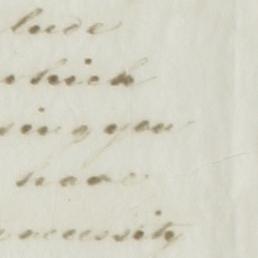 lude
which
sing you
have
necessity